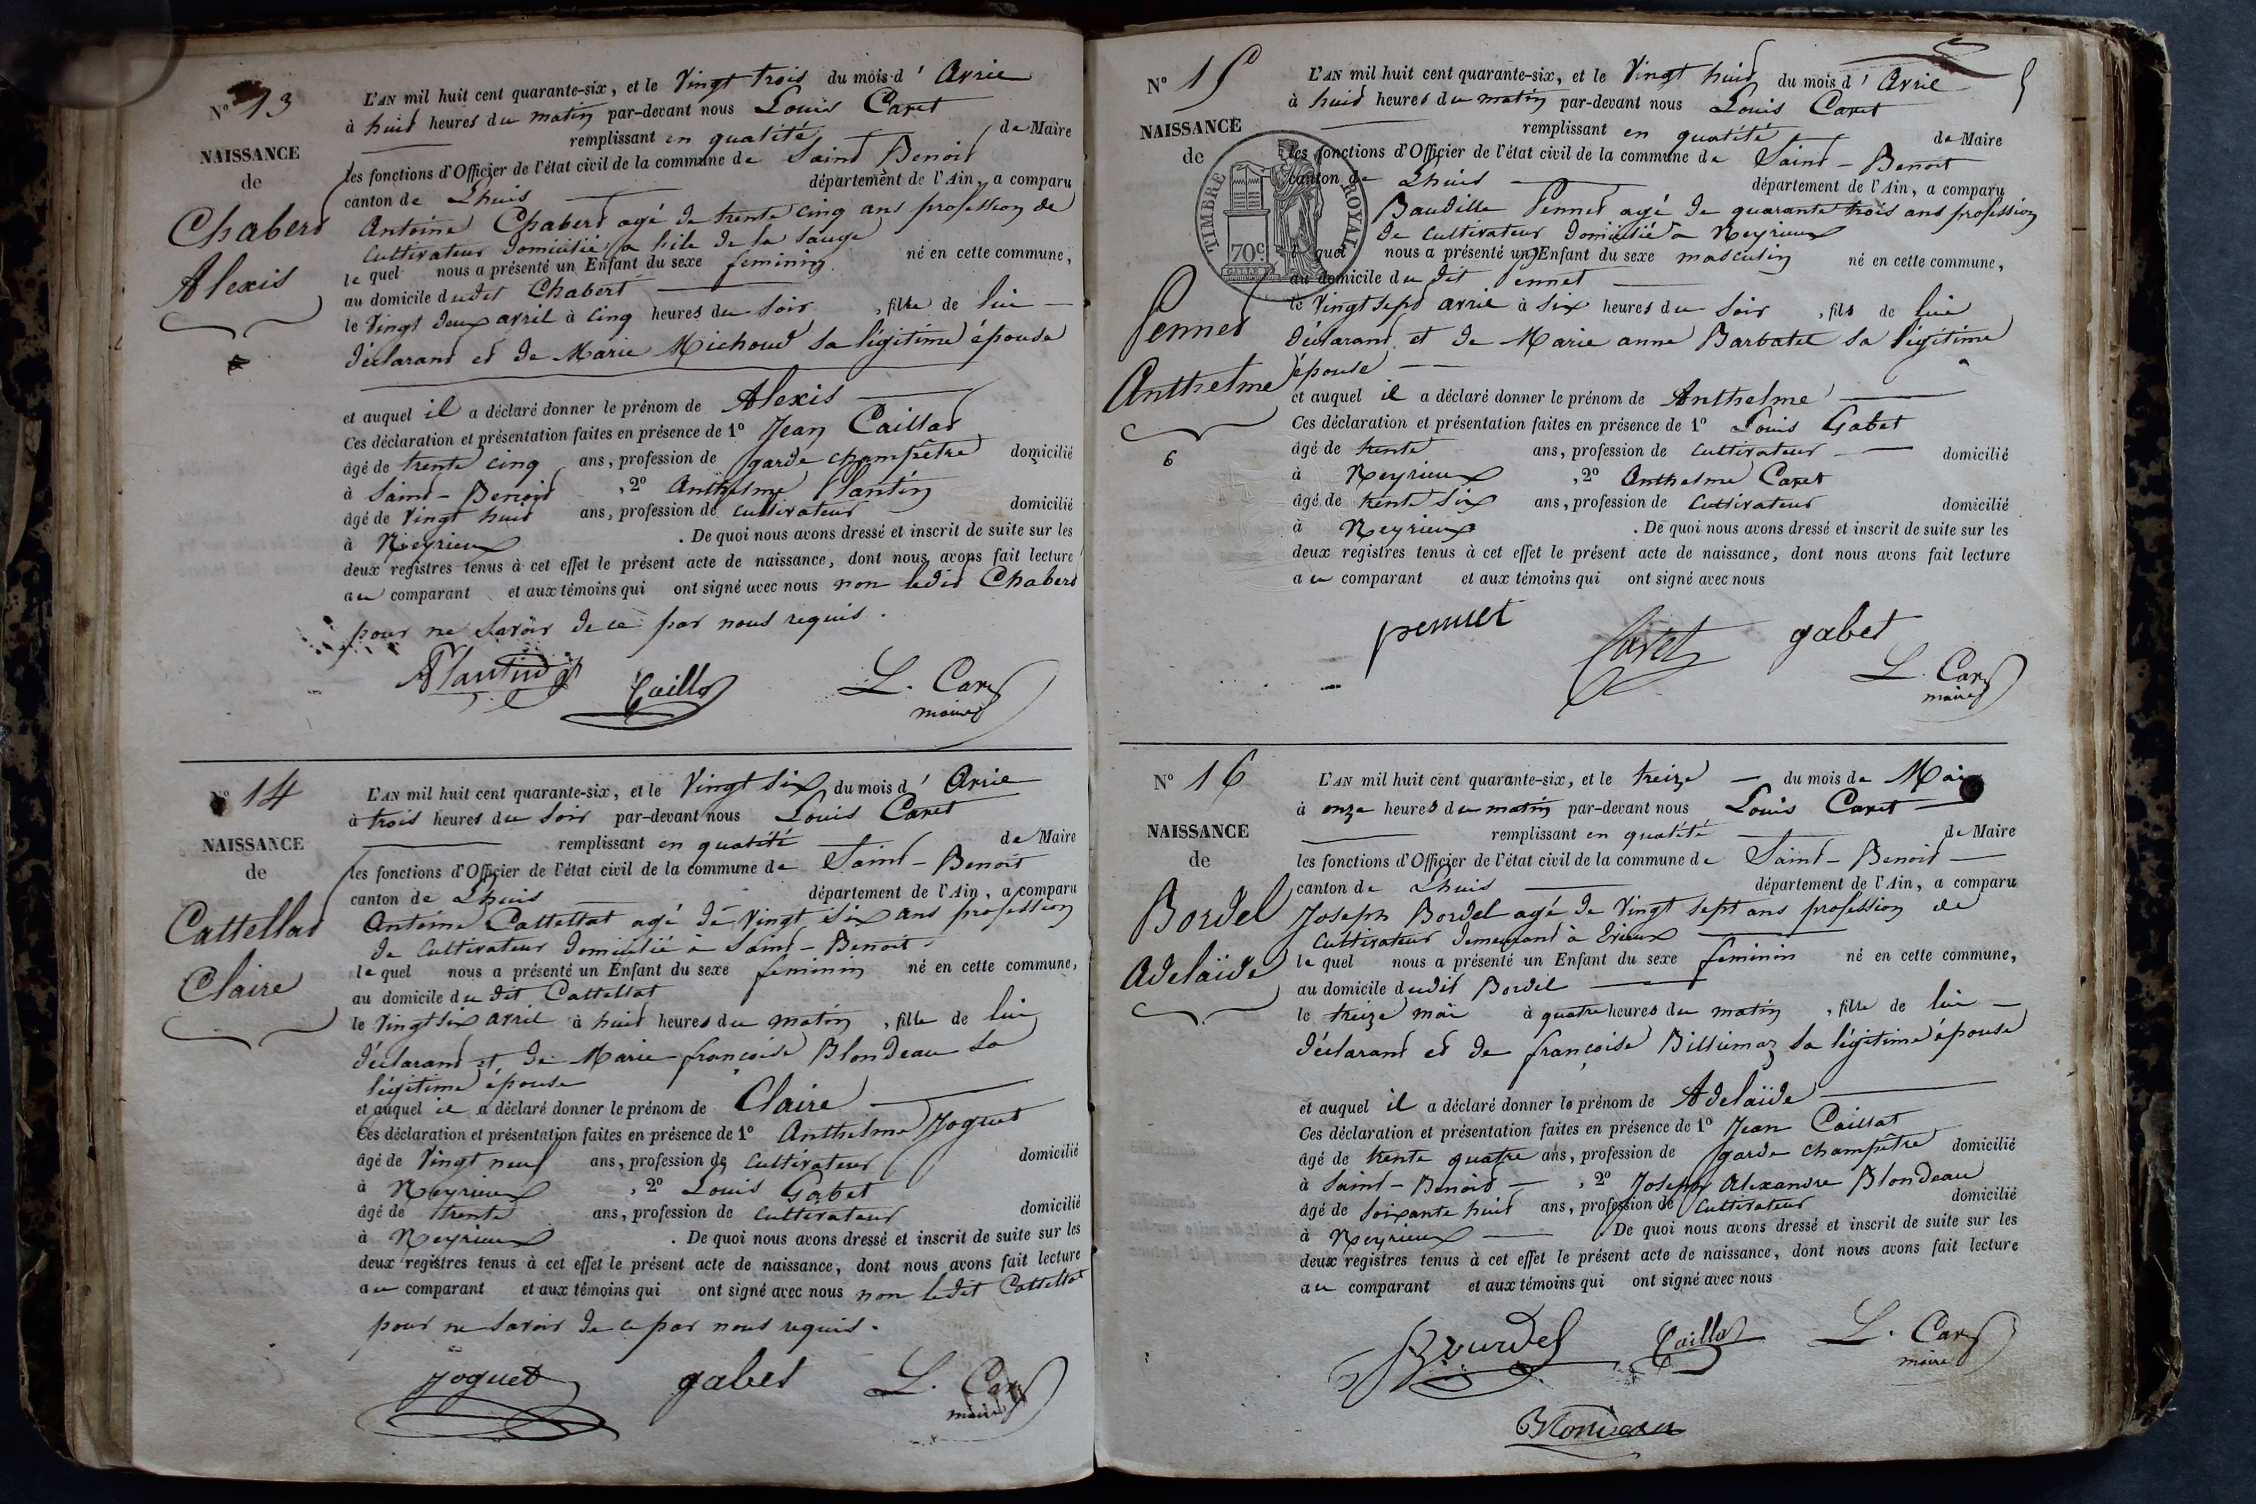 N° 13
NAISSANCE
de
Chabert
Alexis
L'AN mil huit cent quarante-six, et le Vingt trois du mois d' Avril
à huit heures du matin par-devant nous Louis Caret
remplissant en qualité de Maire
les fonctions d'Officier de l'état civil de la commune de Saint Benoit
canton de Lhuis département de l'Ain, a comparu
Antoine Chabert agé de trente cinq ans profession de
cultivateur domicilié a hile de la Sauge
le quel nous a présenté un Enfant du sexe feminin né en cette commune,
au domicile dudit Chabert
le Vingt deux avril à cinq heures du soir, fille de lui
déclarant et de Marie Michoud sa légitime épouse
et auquel il a déclaré donner le prénom de Alexis
Ces déclaration et présentation faites en présence de 1° Jean Caillat
âgé de trente cinq ans, profession de garde champêtre domicilié
à Saint-Benoit, 2° Anthelme Plantin
âgé de Vingt huit ans, profession de cultivateur domicilié
à Neyrieux. De quoi nous avons dressé et inscrit de suite sur les
deux registres tenus à cet effet le présent acte de naissance, dont nous avons fait lecture
au comparant et aux témoins qui ont signé avec nous non ledit Chabert
pour ne savoir de ce par nous requis.
Caillat
L. Caret
maire
N° 14
NAISSANCE
de
Cattellat
Claire
L'AN mil huit cent quarante-six, et le Vingt six du mois d' Avril
à trois heures du soir par-devant nous Louis Caret
remplissant en qualité de Maire
les fonctions d'Officier de l'état civil de la commune de Saint-Benoit
canton de Lhuis département de l'Ain, a comparu
Antoine Cattellat agé de Vingt six ans profession
de cultivateur domicilié à Saint-Benoit
le quel nous a présenté un Enfant du sexe feminin né en cette commune,
au domicile du dit Cattellat
le Vingt six avril à huit heures du matin, fille de lui
déclarant et de Marie françoise Blondeau sa
légitime épouse
et auquel il a déclaré donner le prénom de Claire
Ces déclaration et présentation faites en présence de 1° Anthelme Joguet
âgé de Vingt neuf ans, profession de cultivateur domicilié
à Neyrieux, 2° Louis Gabet
âgé de trente ans, profession de cultivateur domicilié
à Neyrieux. De quoi nous avons dressé et inscrit de suite sur les
deux registres tenus à cet effet le présent acte de naissance, dont nous avons fait lecture
au comparant et aux témoins qui ont signé avec nous non ledit Cattellat
pour ne savoir de ce par nous requis.
joguet gabet L. Caret
maire
N° 15
NAISSANCE
de
Pennet
Anthelme
6
TIMBRE ROYAL
70 c
L'AN mil huit cent quarante-six, et le Vingt huit du mois d' Avril
à huit heures du matin par-devant nous Louis Caret
remplissant en qualité de Maire
les fonctions d'Officier de l'état civil de la commune de Saint-Benoit
canton de Lhuis département de l'Ain, a comparu
Baudille Pennet agé de quarante trois ans profession
de cultivateur domicilié a Neyrieux
le quel nous a présenté un Enfant du sexe masculin né en cette commune,
au domicile du dit Pennet
le Vingt sept avril à six heures du soir, fils de lui
déclarant et de Marie anne Barbatet sa légitime
épouse
et auquel il a déclaré donner le prénom de Anthelme
Ces déclaration et présentation faites en présence de 1° Louis Gabet
âgé de trente ans, profession de cultivateur domicilié
à Neyrieux, 2° Anthelme Caret
âgé de trente six ans, profession de cultivateur domicilié
à Neyrieux. De quoi nous avons dressé et inscrit de suite sur les
deux registres tenus à cet effet le présent acte de naissance, dont nous avons fait lecture
au comparant et aux témoins qui ont signé avec nous
pennet Caret gabet
L. Caret
maire
N° 16
NAISSANCE
de
Bordel
Adelaïde
L'AN mil huit cent quarante-six, et le treize du mois de Mai
à onze heures du matin par-devant nous Louis Caret
remplissant en qualité de Maire
les fonctions d'Officier de l'état civil de la commune de Saint-Benoit
canton de Lhuis département de l'Ain, a comparu
Joseph Bordel agé de Vingt sept ans profession de
cultivateur demeurant à Evieux
le quel nous a présenté un Enfant du sexe feminin né en cette commune,
au domicile dudit Bordel
le treize mai à quatre heures du matin, fille de lui
déclarant et de françoise Billiemaz sa légitime épouse
et auquel il a déclaré donner le prénom de Adelaïde
Ces déclaration et présentation faites en présence de 1° Jean Caillat
âgé de trente quatre ans, profession de garde champêtre domicilié
à Saint-Benoit, 2° Joseph Alexandre Blondeau
âgé de soixante huit ans, profession de cultivateur domicilié
à Neyrieux. De quoi nous avons dressé et inscrit de suite sur les
deux registres tenus à cet effet le présent acte de naissance, dont nous avons fait lecture
au comparant et aux témoins qui ont signé avec nous
Bourdel Caillat L. Caret
maire
Blondeau